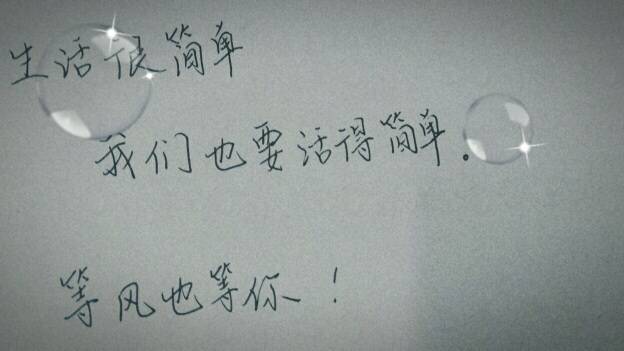 生活很简单
我们也要活得简单.
等风也等你！